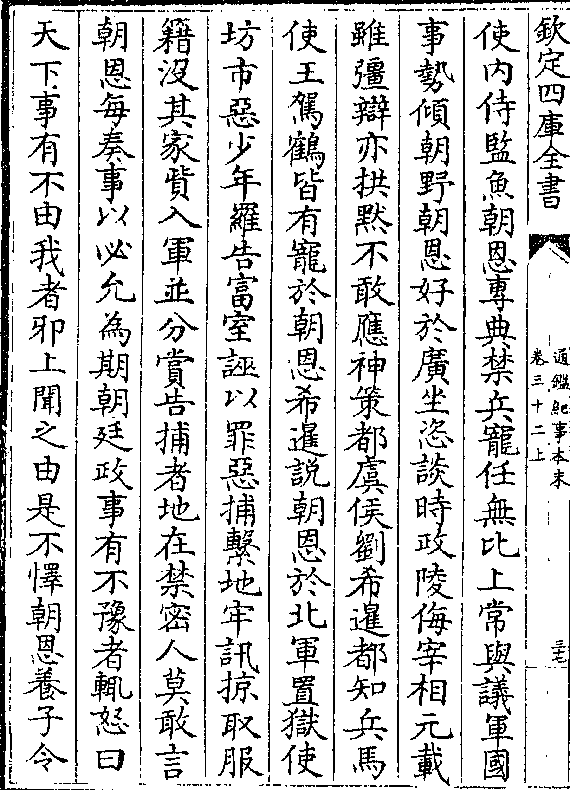 欽定四庫全書
通鑑紀事本末
卷三十二上
三七
使内侍監魚朝恩專典禁兵寵任無比上常與議軍國
事勢傾朝野朝恩好於廣坐恣談時政陵侮宰相元載
雖彊辯亦拱默不敢應神策都虞侯劉希暹都知兵馬
使王駕鶴皆有寵於朝恩希暹説朝恩於北軍置獄使
坊市惡少年羅告富室誣以罪惡捕繫地牢訊掠取服
籍沒其家貲入軍並分賞告捕者地在禁密人莫敢言
朝恩每奏事以必允為期朝廷政事有不豫者輒怒曰
天下事有不由我者邪上聞之由是不懌朝恩養子令